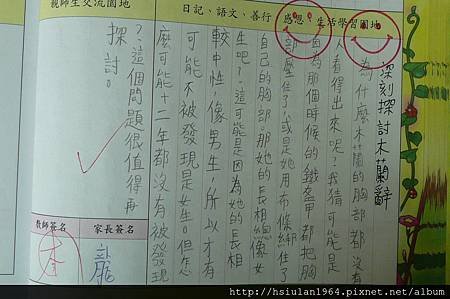 親師生交流園地
日記、語文、善行
感恩、生活學習園地
深刻探討木蘭辭
為什麼木蘭的胸部都沒有
人看得出來呢?我猜可能是
因為那個時候的鐵盔甲都把胸
部壓住了,或是她用布條綁住了
自己的胸部。那她的長相總像女
生吧?這可能是因為她的長相
較中性,像男生,所以才有
可能不被發現是女生。但怎
麼可能十二年都沒有被發現
?這個問題很值得再
探討。
教師簽名
家長簽名
http://hsiulan1964.pixnet.net/album